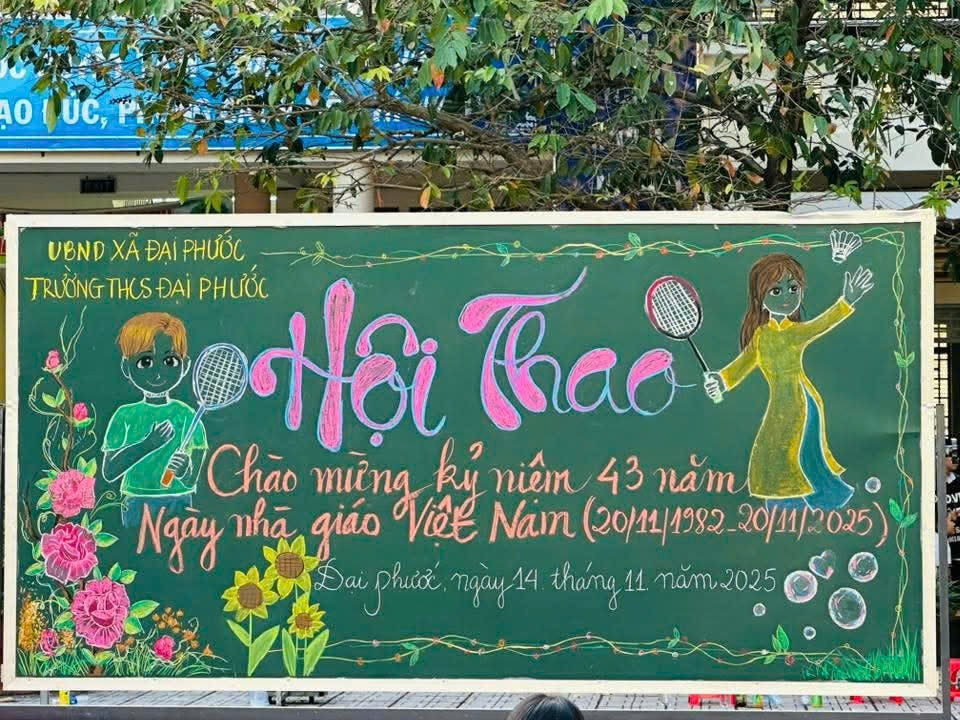 UBND XÃ ĐẠI PHƯỚC
TRƯỜNG THCS ĐẠI PHƯỚC
Hội Thao
Chào mừng kỷ niệm 43 năm
Ngày nhà giáo Việt Nam (20/11/1982_20/11/2025)
Đại phước, ngày 14. tháng 11. năm 2025
EXIT